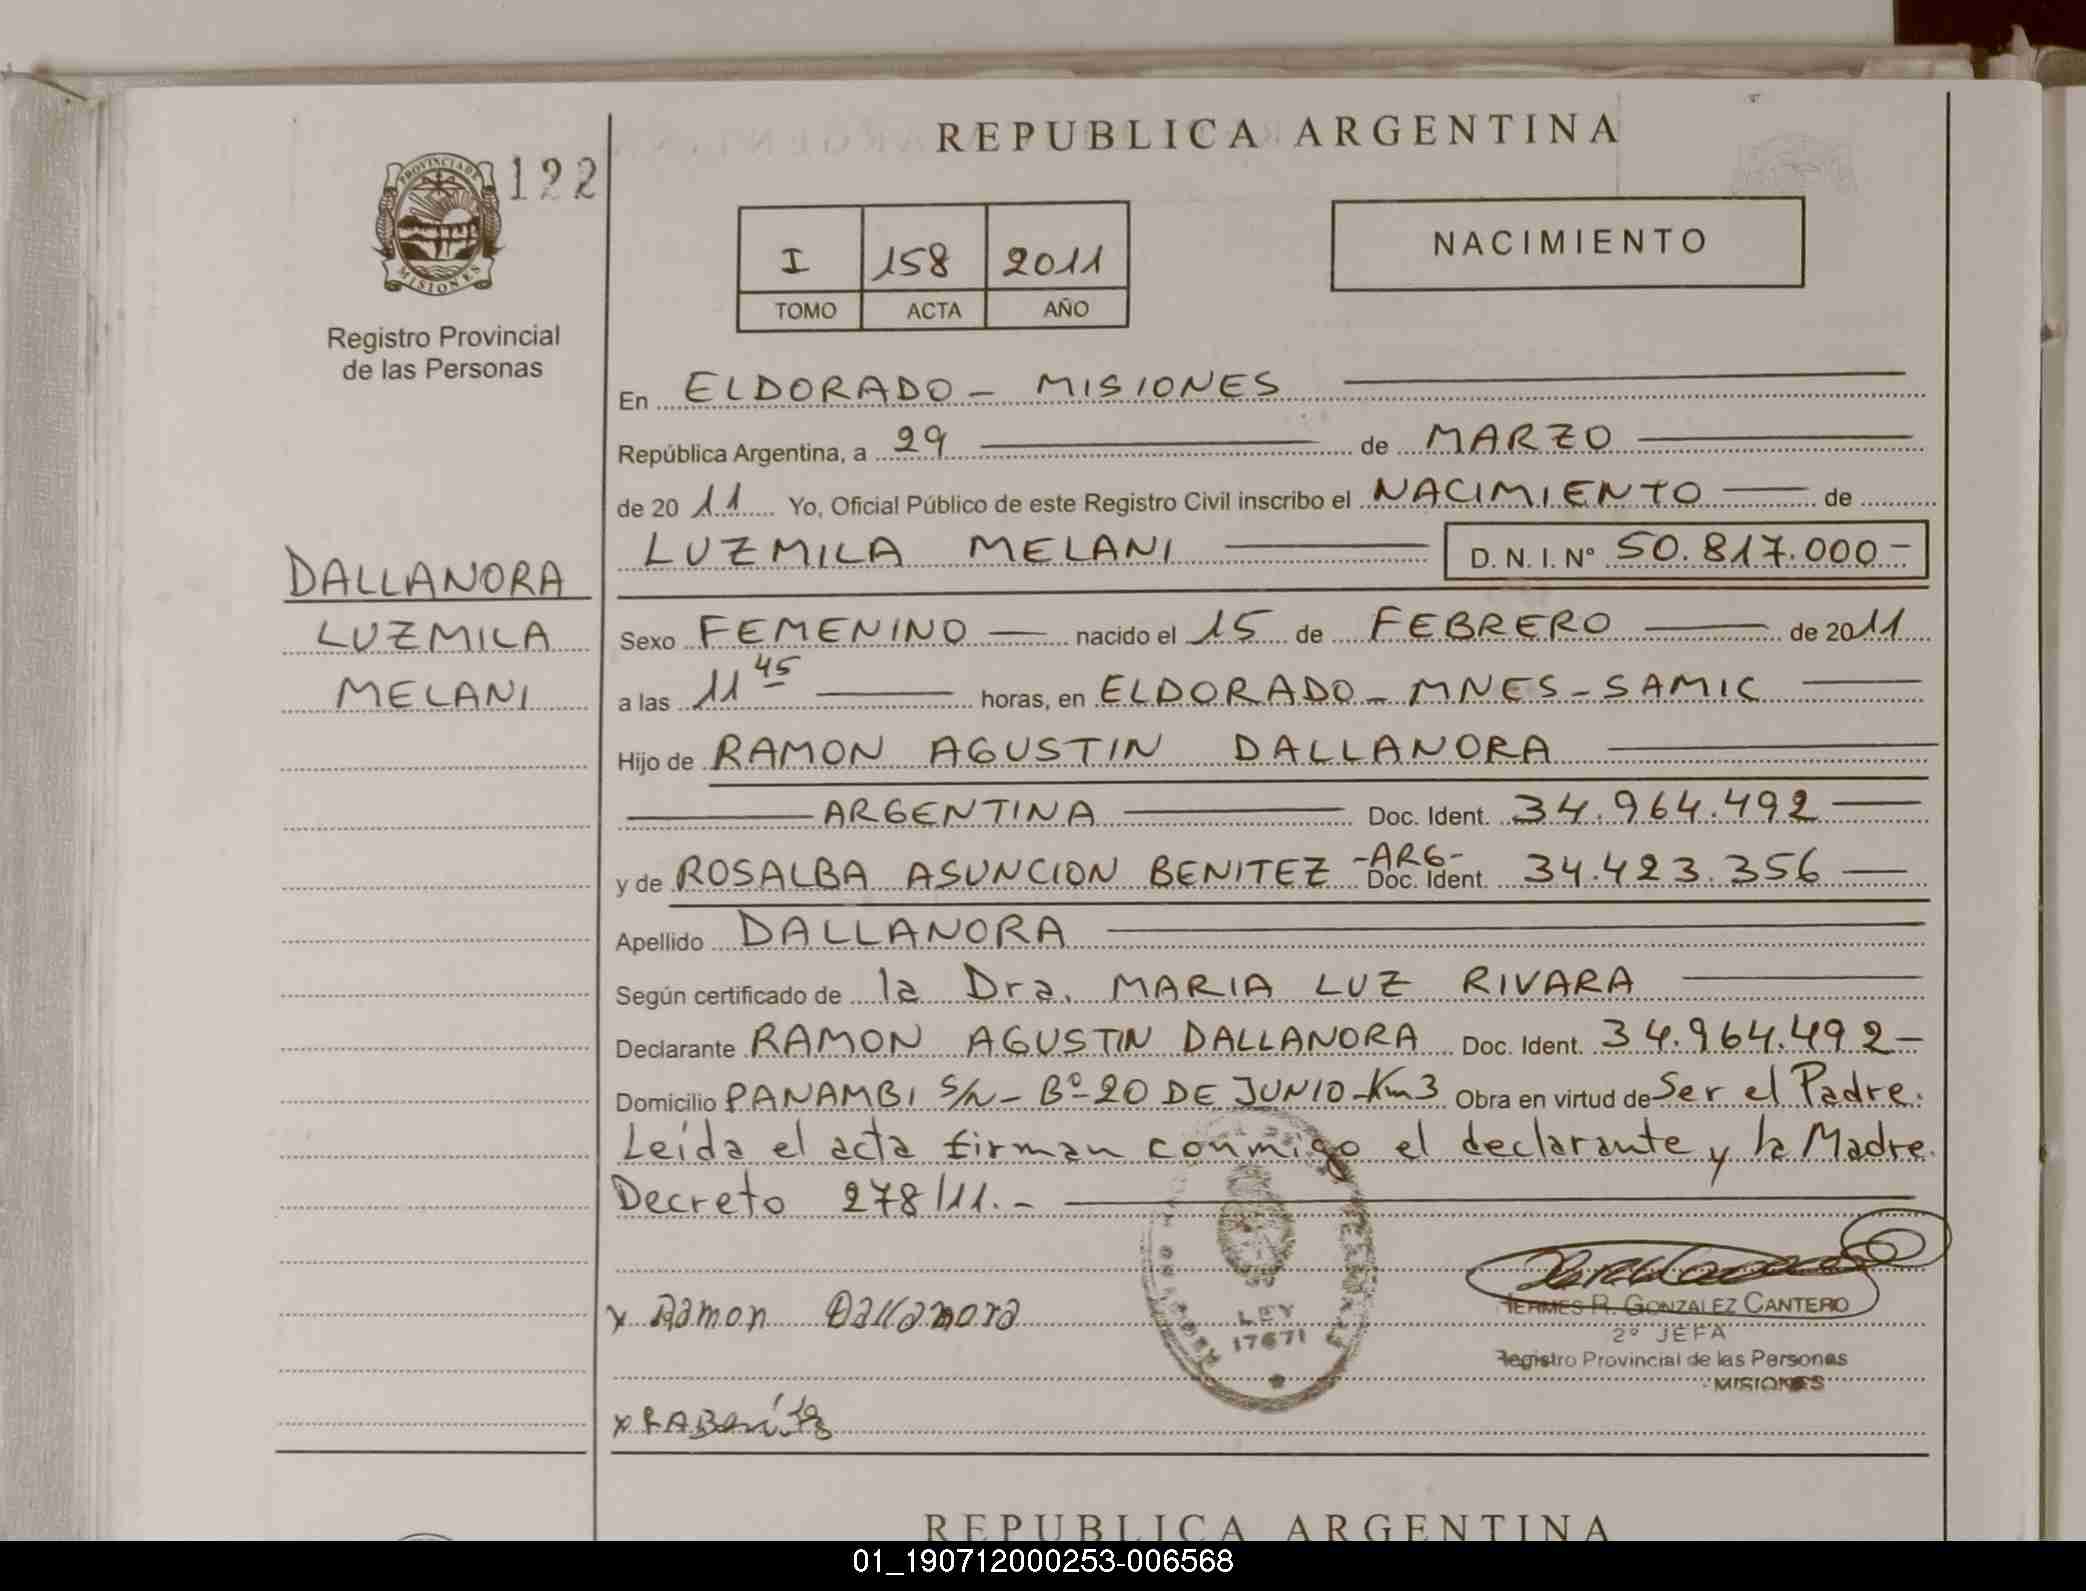 REPUBLICA ARGENTINA
PROVINCIA DE
MISIONES
122
Registro Provincial
de las Personas
I 158 2011
TOMO ACTA AÑO
NACIMIENTO
En ELDORADO - MISIONES
República Argentina, a 29 de MARZO
de 2011 Yo, Oficial Público de este Registro Civil inscribo el NACIMIENTO de
LUZMILA MELANI D. N. I. Nº 50.817.000-
DALLANORA
LUZMILA
MELANI
Sexo FEMENINO nacido el 15 de FEBRERO de 2011
a las 11 45 horas, en ELDORADO - MNES - SAMIC
Hijo de RAMON AGUSTIN DALLANORA
ARGENTINA Doc. Ident. 34.964.492
y de ROSALBA ASUNCION BENITEZ -ARG- Doc. Ident. 34.423.356
Apellido DALLANORA
Según certificado de la Dra. MARIA LUZ RIVARA
Declarante RAMON AGUSTIN DALLANORA Doc. Ident. 34.964.492-
Domicilio PANAMBI S/N - Bº 20 DE JUNIO - Km 3 Obra en virtud de Ser el Padre.
Leída el acta firman conmigo el declarante y la Madre.
Decreto 278/11.-
x Ramon Dallanora
LEY
17671
HERMES R. GONZALEZ CANTERO
2º JEFA
Registro Provincial de las Personas
- MISIONES
x R A Benítez
REPUBLICA ARGENTINA
01_190712000253-006568